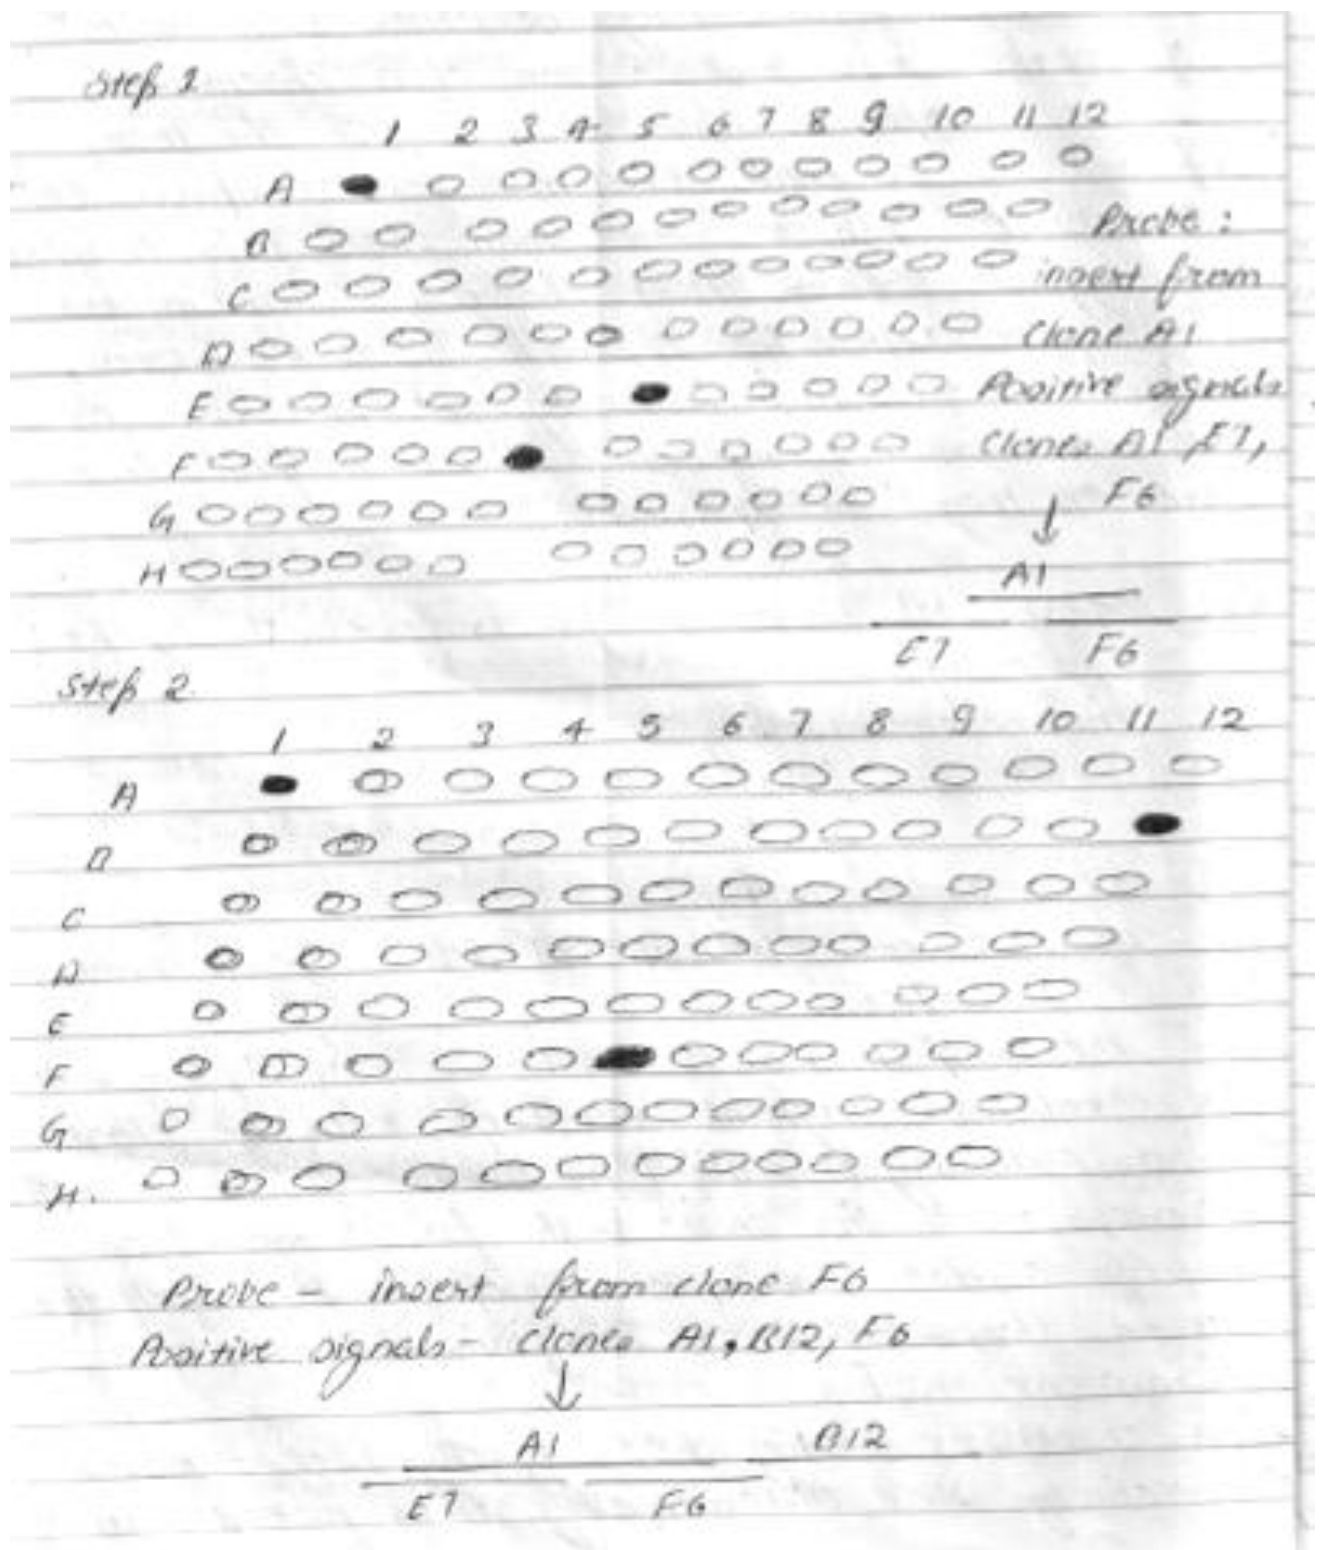 Step 1
1 2 3 4 5 6 7 8 9 10 11 12
A
B
Probe :
C
insert from
D
clone A1
E
Positive signals
F
clones A1, E7,
G
F6
H
A1
E7 F6
Step 2
1 2 3 4 5 6 7 8 9 10 11 12
A
B
C
D
E
F
G
H.
Probe - insert from clone F6
Positive signals - clones A1, B12, F6
A1 B12
E7 F6